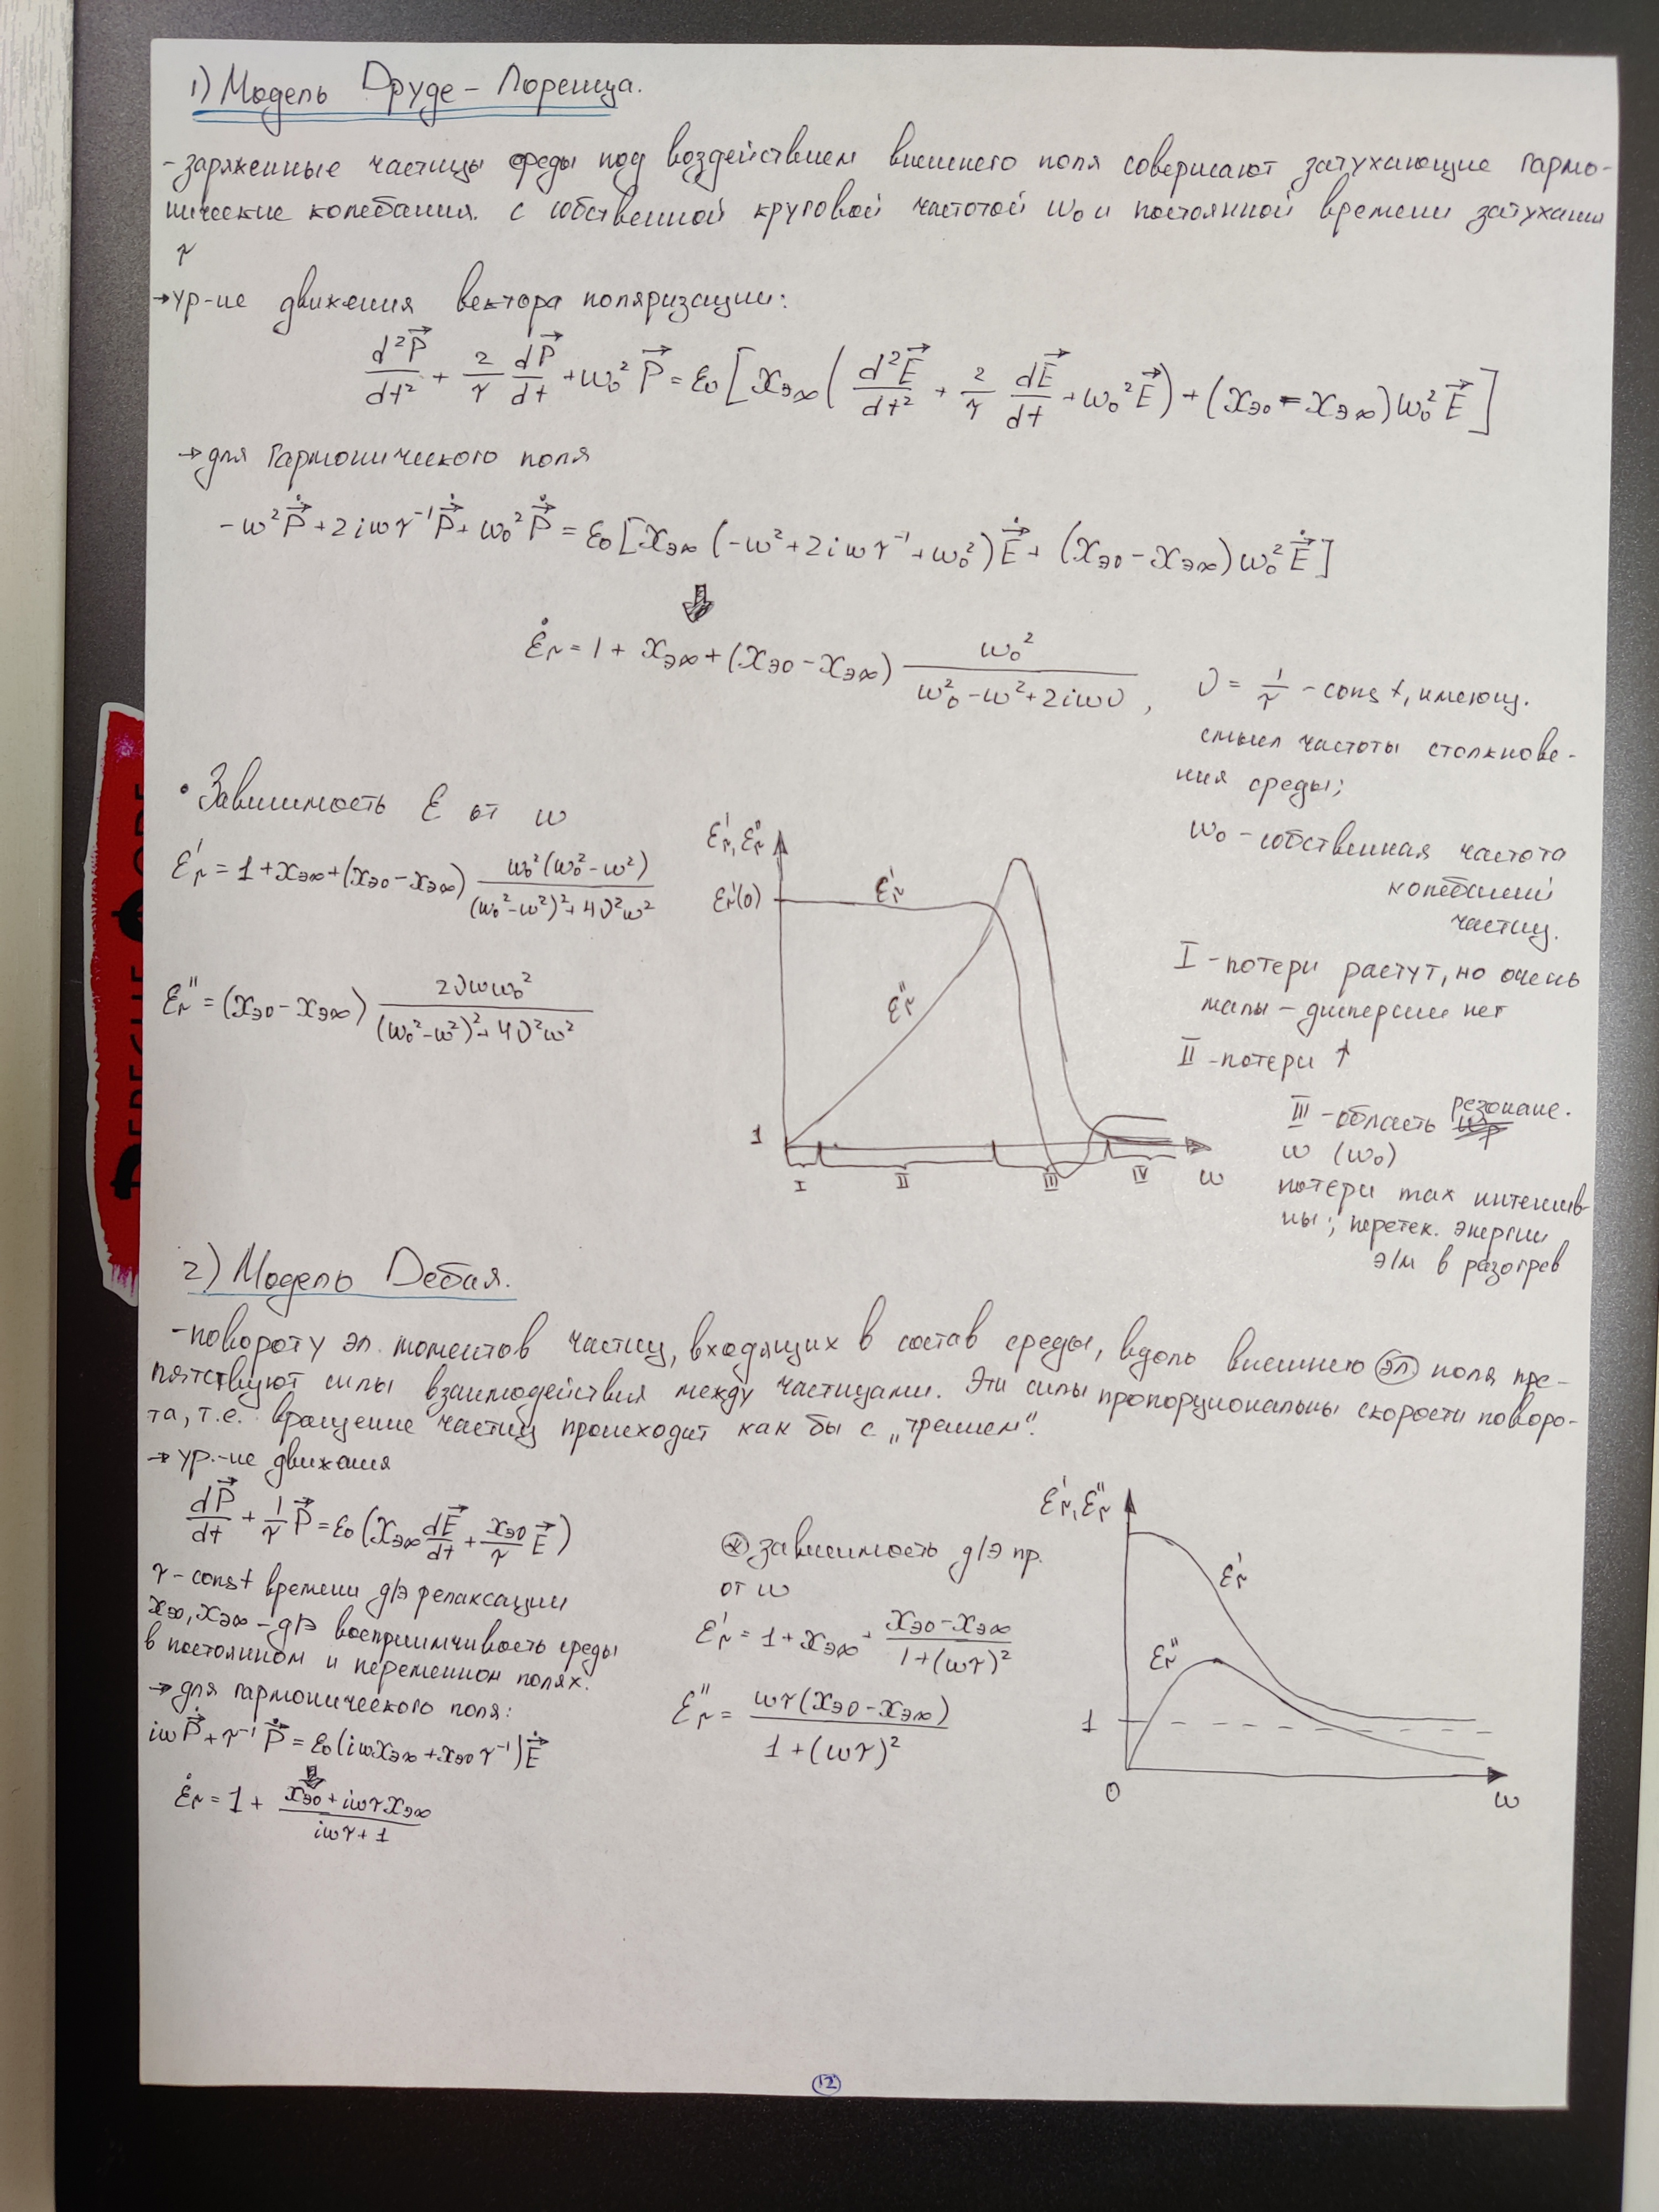 1) Модель Друде - Лоренца.
- заряженные частицы среды под воздействием внешнего поля совершают затухающие гармо-
нические колебания. с собственной круговой частотой ω₀ и постоянной времени затухания
τ
→ ур-ие движения вектора поляризации:
d²P⃗/dt² + 2/τ dP⃗/dt + ω₀² P⃗ = ε₀ [χэ∞ ( d²E⃗/dt² + 2/τ dE⃗/dt + ω₀² E⃗ ) + (χэ0 - χэ∞) ω₀² E⃗ ]
→ для гармонического поля
-ω² Ṗ⃗ + 2iωτ⁻¹ Ṗ⃗ + ω₀² Ṗ⃗ = ε₀ [χэ∞ (-ω² + 2iωτ⁻¹ + ω₀²) Ė⃗ + (χэ0 - χэ∞) ω₀² Ė⃗ ]
⇓
ε̇r = 1 + χэ∞ + (χэ0 - χэ∞) ω₀² / (ω₀² - ω² + 2iων) ,
ν = 1/τ - const, имеющ.
смысл частоты столкнове-
ния среды;
ω₀ - собственная частота
колебаний
частиц.
• Зависимость ε от ω
ε'r = 1 + χэ∞ + (χэ0 - χэ∞) ω₀² (ω₀² - ω²) / ((ω₀² - ω²)² + 4ν²ω²)
ε''r = (χэ0 - χэ∞) 2νωω₀² / ((ω₀² - ω²)² + 4ν²ω²)
ε'r, ε''r
ε'r(0)
ε'r
ε''r
1
I II III IV ω
I - потери растут, но очень
малы - дисперсии нет
II - потери ↑
III - область резонанс.
ω (ω₀)
потери max интенсив
ны; перетек. энергии
э/м в разогрев
2) Модель Дебая.
- повороту эл. моментов частиц, входящих в состав среды, вдоль внешнего эл поля пре-
пятствуют силы взаимодействия между частицами. Эти силы пропорциональны скорости поворо-
та, т.е. вращение частиц происходит как бы с „трением".
→ ур.-ие движения
dP⃗/dt + 1/τ P⃗ = ε₀ (χэ∞ dE⃗/dt + χэ0/τ E⃗)
τ - const времени д/э релаксации
χэ0, χэ∞ - д/э восприимчивость среды
в постоянном и переменном полях.
→ для гармонического поля:
iω Ṗ⃗ + τ⁻¹ Ṗ⃗ = ε₀ (iωχэ∞ + χэ0 τ⁻¹) Ė⃗
⇓
ε̇r = 1 + (χэ0 + iωτχэ∞) / (iωτ + 1)
⊛ зависимость д/э пр.
от ω
ε'r = 1 + χэ∞ + (χэ0 - χэ∞) / (1 + (ωτ)²)
ε''r = ωτ(χэ0 - χэ∞) / (1 + (ωτ)²)
ε'r, ε''r
ε'r
ε''r
1
0
ω
12